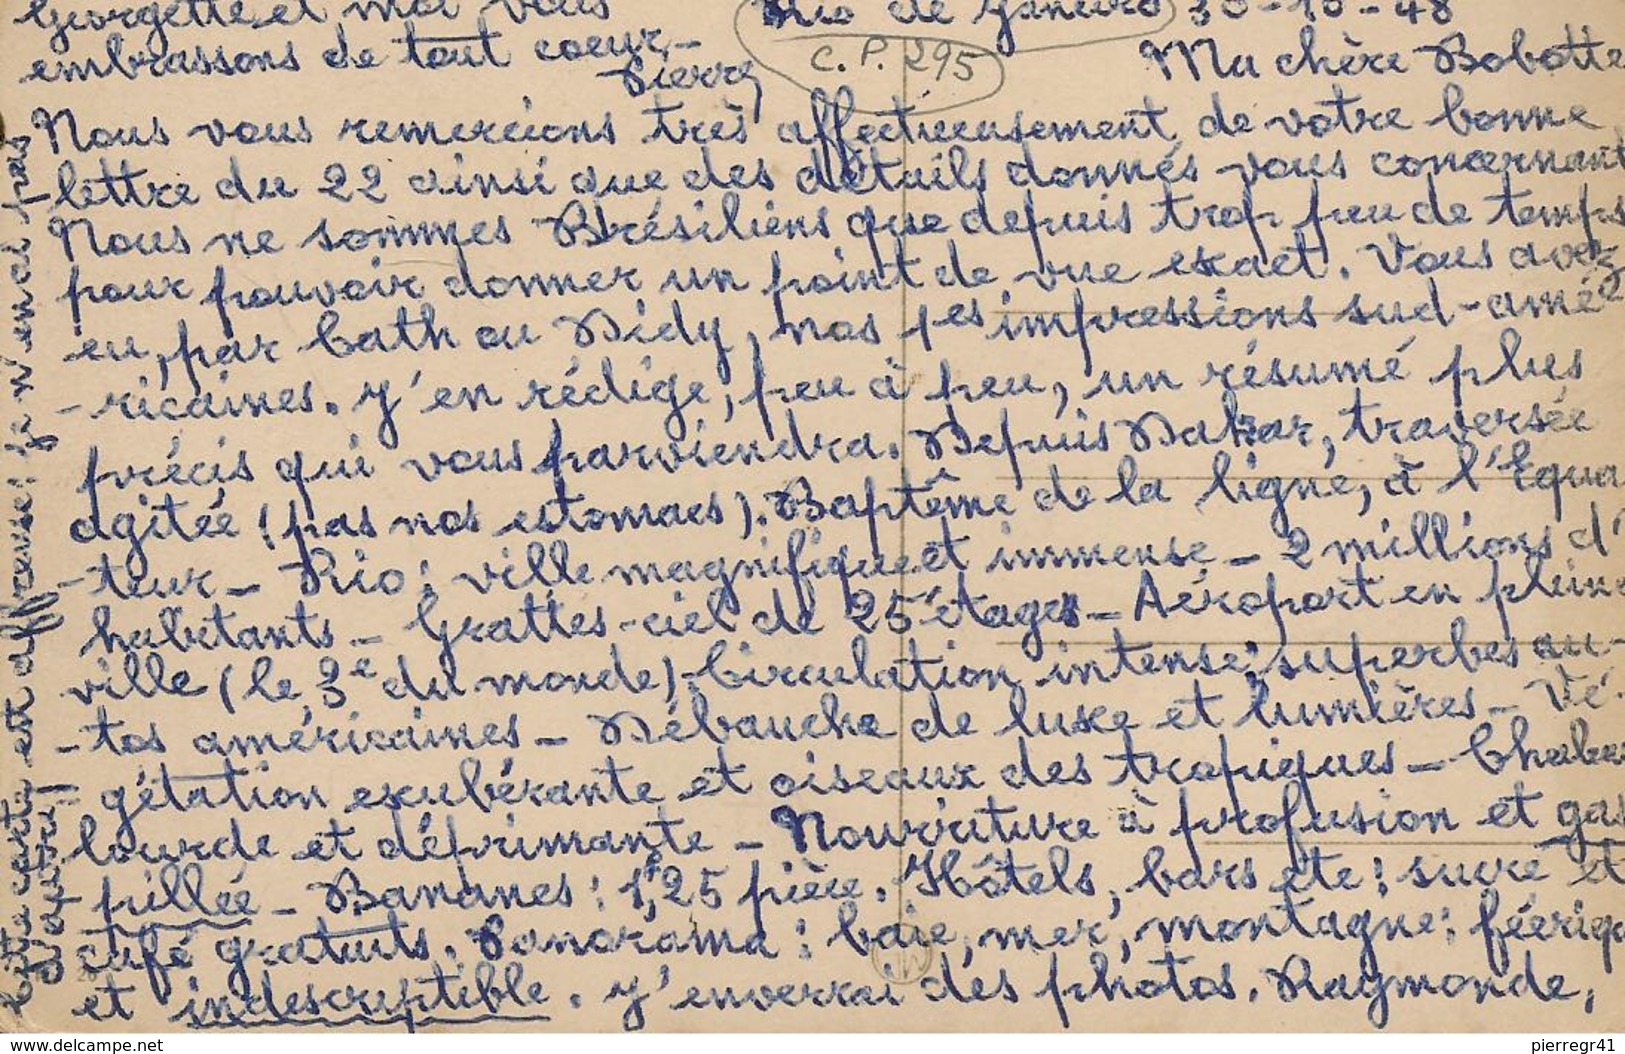 Rio de Janeiro 30-10-48
C.P. 295
Ma chère Bobotte
Nous vous remercions très affectueusement de votre bonne
lettre du 22 ainsi que des détails donnés vous concernant
Nous ne sommes Brésiliens que depuis trop peu de temps
pour pouvoir donner un point de vue exact. Vous avez
eu, par Cath ou Didy, nos 1es impressions sud-amé
-ricaines. J'en rédige, peu à peu, un résumé plus
précis qui vous parviendra. Depuis Dakar, traversée
agitée (pas nos estomacs). Baptême de la ligne, à l'Equa
-teur - Rio : ville magnifique et immense - 2 millions d'
habitants - Grattes-ciel de 25 étages - Aéroport en pleine
ville (le 3e du monde). Circulation intense; superbes au-
-tos américaines - Débauche de luxe et lumières - Vé-
gétation exubérante et oiseaux des tropiques - Chaleur
lourde et déprimante - Nourriture à profusion et gas
pillée - Bananes : 1f,25 pièce. Hôtels, bars etc : sucre et
café gratuits. Panorama : baie, mer, montagne; féeriqu
et indescriptible. J'enverrai des photos. Raymonde,
Georgette et moi vous
embrassons de tout coeur -
Pierre
Cette carte est affreuse : je n'en ai pas
d'autre !
www.delcampe.net
pierregr41